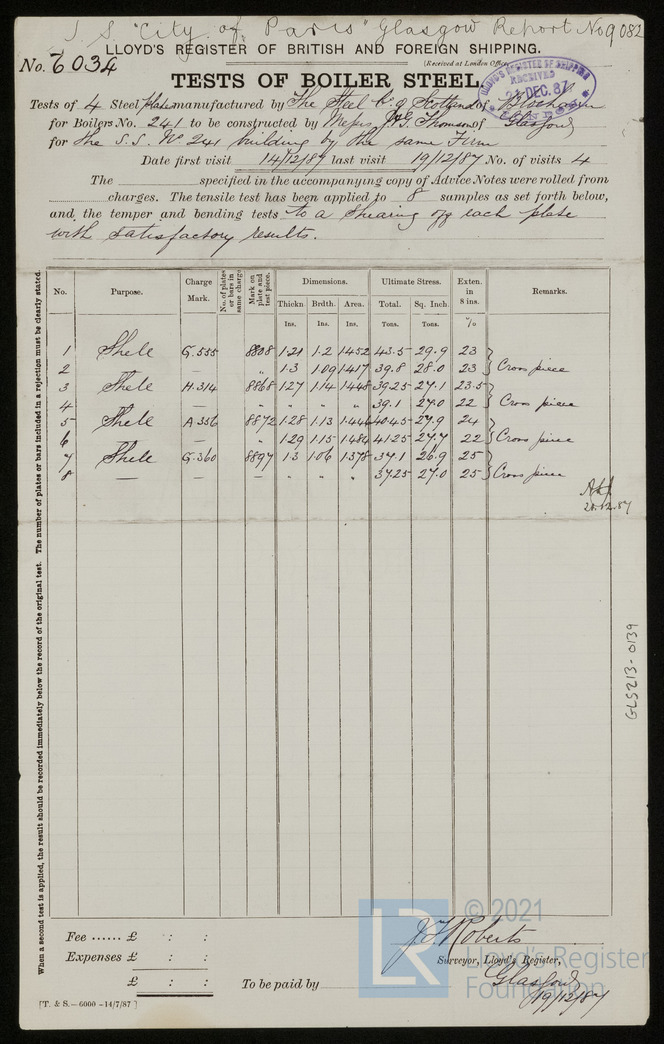 S. S. "City of Paris" Glasgow Report No 9082
LLOYD'S REGISTER OF BRITISH AND FOREIGN SHIPPING.
No. 6034
(Received at London Office
TESTS OF BOILER STEEL.
LLOYD'S REGISTER OF SHIPPING
RECEIVED
DEC. 87
Tests of 4 Steel plates manufactured by The Steel Co of Scotland of Blochairn
for Boilers No. 241 to be constructed by Messrs J & G. Thomson of Glasgow
for the S.S. No 241 building by the same Firm
Date first visit 14/12/87 last visit 19/12/87 No. of visits 4
The specified in the accompanying copy of Advice Notes were rolled from
charges. The tensile test has been applied to 8 samples as set forth below,
and the temper and bending tests to a shearing off each plate
with satisfactory results.
When a second test is applied, the result should be recorded immediately below the record of the original test. The number of plates or bars included in a rejection must be clearly stated.
No. Purpose. Charge Mark. No. of plates or bars in same charge Mark on plate and test piece. Dimensions. Ultimate Stress. Exten. in 8 ins. Remarks.
Thickn Brdth. Area. Total. Sq. Inch.
Ins. Ins. Ins. Tons. Tons. %
1 Shell G.555 8808 1.21 1.2 1.452 43.5 29.9 23
2 — " 1.3 1.09 1.417 39.8 28.0 23 Cross piece
3 Shell H.314 8868 1.27 1.14 1.448 39.25 27.1 23.5
4 — " " " " 39.1 27.0 22 Cross piece
5 Shell A.356 8872 1.28 1.13 1.446 40.45 27.9 24
6 — " 1.29 1.15 1.484 41.25 27.7 22 Cross piece
7 Shell G.360 8897 1.3 1.06 1.378 37.1 26.9 25
8 — — — " " " " 37.25 27.0 25 Cross piece
20.12.87
GLS213-0139
Fee ...... £ : :
Expenses £ : :
£ : :
To be paid by
J T Roberts
Surveyor, Lloyd's Register,
Glasgow
19/12/87
[T. & S.—6000 -14/7/87]
LR
© 2021
Lloyd's Register
Foundation